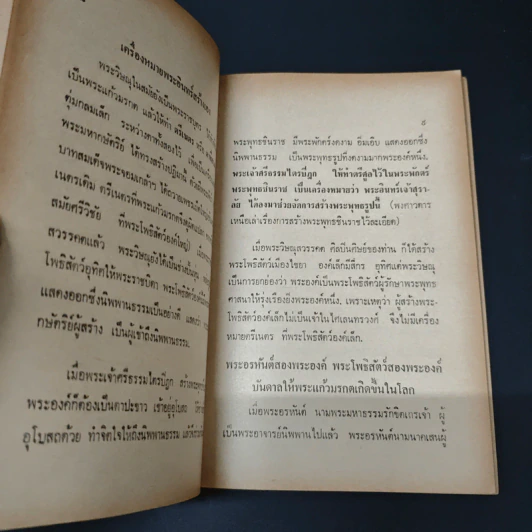 เครื่องหมายพระอินทร์สร้าง
พระวิษณุในสมัยยังเป็นพระราชบุตร
เป็นพระแก้วมรกต แล้วให้ทำ
ตุ่มกลมเล็ก ระหว่างตาทั้งสองไว้
พระมหากษัตริย์ ได้ทรงสร้างปฏิมานี้
บาทสมเด็จพระจอมเกล้าฯ ได้ถวาย
เนตรเติม ตรีเนตรที่พระแก้วมรกต
สมัยศรีวิชัย ที่พระโพธิสัตว์องค์ใหญ่)
สวรรคตแล้ว พระวิษณุยังได้เป็น
โพธิสัตว์อุทิศให้พระราชบิดา พระโพธิสัตว์องค์
แสดงออกซึ่งนิพพานธรรมเป็นอย่างดี แสดงว่า
กษัตริย์ผู้สร้าง เป็นผู้เข้าถึงนิพพานธรรม.
เมื่อพระเจ้าศรีธรรมไตรปิฎก สร้างพระพุทธ
พระองค์ก็ต้องเป็นดาปะขาว เข้าอยู่อุโบสถ
อุโบสถด้วย ทำจิตใจให้ถึงนิพพานธรรม แล้วจึง
๕
พระพุทธชินราช มีพระพักตร์งดงาม อิ่มเอิบ แสดงออกซึ่ง
นิพพานธรรม เป็นพระพุทธรูปที่งดงามมากพระองค์หนึ่ง.
พระเจ้าศรีธรรมไตรปิฎก ให้ทำตรีศูลไว้ในพระพักตร์
พระพุทธชินราช เป็นเครื่องหมายว่า พระอินทร์เจ้าสุรา-
ลัย ได้ลงมาช่วยอภิการสร้างพระพุทธรูปนี้ (พงศาวดาร
เหนือเล่าเรื่องการสร้างพระพุทธชินราชไว้ละเอียด)
เมื่อพระวิษณุสวรรคต ศิลปินศิษย์ของท่าน ก็ได้สร้าง
พระโพธิสัตว์เมืองไชยา องค์เล็กมีสี่กร อุทิศแด่พระวิษณุ
เป็นการยกย่องว่า พระองค์เป็นพระโพธิสัตว์ผู้รักษาพระพุทธ
ศาสนาให้รุ่งเรืองยิ่งพระองค์หนึ่ง. เพราะเหตุว่า ผู้สร้างพระ-
โพธิสัตว์องค์เล็กไม่เป็นเจ้าในไศเลนทรวงศ์ จึงไม่มีเครื่อง
หมายตรีเนตร ที่พระโพธิสัตว์องค์เล็ก.
พระอรหันต์สองพระองค์ พระโพธิสัตว์สองพระองค์
บันดาลให้พระแก้วมรกตเกิดขึ้นในโลก
เมื่อพระอรหันต์ นามพระมหาธรรมรักขิตเถรเจ้า ผู้
เป็นพระอาจารย์นิพพานไปแล้ว พระอรหันต์นามนาคเสนผู้